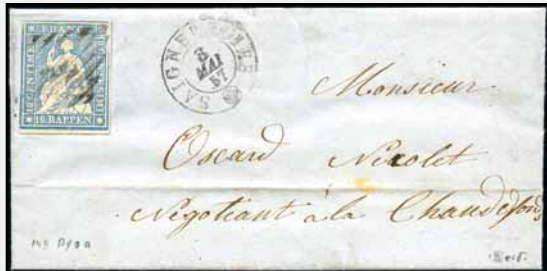 FRANCO
10 CENTIMES
10 RAPPEN
SAIGNELEGIER
3
MAI
57
Monsieur
Oscard Nicolet
Négotiant à la Chaudefonds